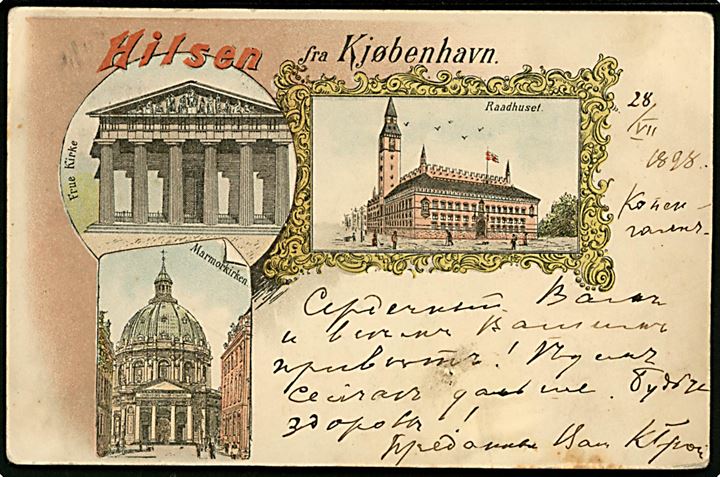 Hilsen fra Kjøbenhavn.
Frue Kirke
Raadhuset.
Marmorkirken.
28/VII
1898.
Копен-
гагенъ.
Сердечный Вамъ
и всѣмъ Вашимъ
привѣтъ! Ѣдемъ
сейчасъ дальше. Будьте
здоровы!
Преданный Вамъ